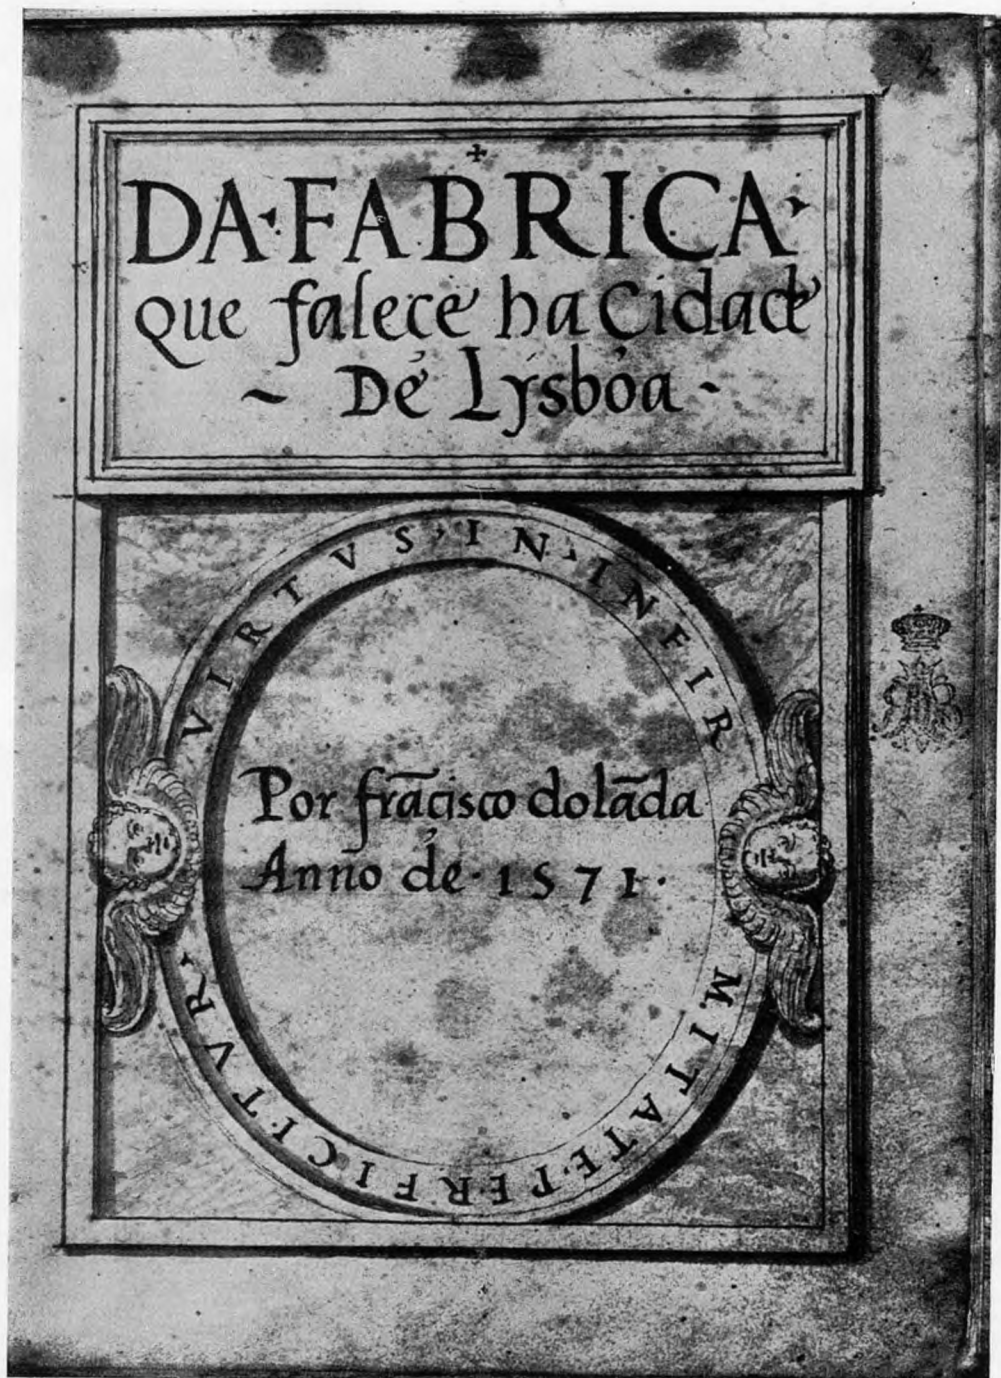 DA·FABRICA·
que falece ha Cidade
~ De Lysboa ·
VIRTVS·IN·INFIRMITATE·PERFICITVR
Por frãcisco dolãda
Anno de · 1571 ·